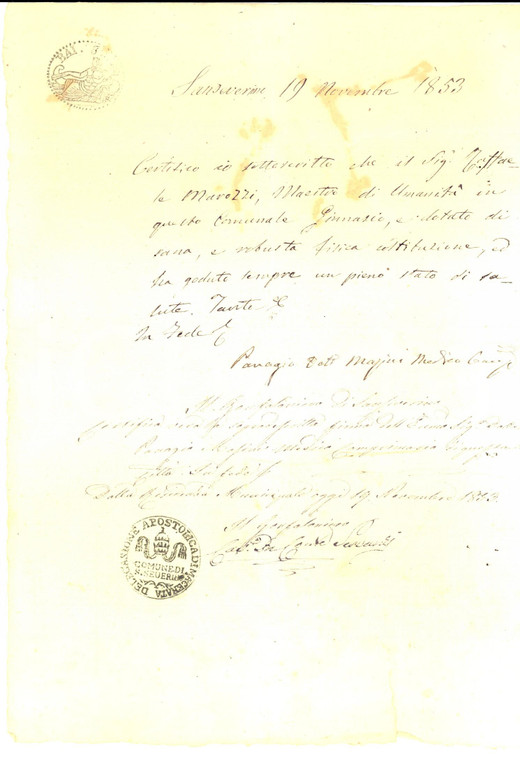 BAI.
Sanseverino 19 Novembre 1853
Certifico io sottoscritto che il Sig. Raffae-
le Marozzi, Maestro di Umanità in
questo Comunale Ginnasio, e dotato di
sana, e robusta fisica costituzione, ed
ha goduto sempre un pieno stato di sa-
lute. Tanto
In Fede
Panagio Dott Masini Medico
Il Gonfaloniere di Sanseverino
certifica vera la soprascritta firma dell'
Panagio Masini Medico
Dalla Residenza Municipale oggi 19 Novembre 1853
Il Gonfaloniere
DELEGAZIONE APOSTOLICA DI MACERATA
COMUNE DI
S. SEVERINO